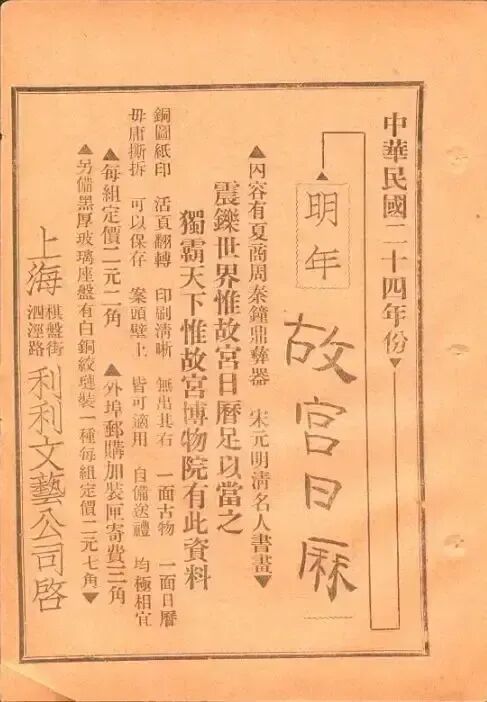 中華民國二十四年份
明年
故宮日厤
▲內容有夏商周秦鐘鼎彝器　宋元明清名人書畫▼
震鑠世界惟故宮日曆足以當之
獨霸天下惟故宮博物院有此資料
銅圖紙印　活頁翻轉　印刷清晰　無出其右　一面古物　一面日曆
毋庸撕拆　可以保存　案頭壁上　皆可適用　自備送禮　均極相宜
▲每組定價二元二角　▲外埠郵購加裝匣寄費三角
▲另備黑厚玻璃座盤有白銅絞璉裝一種每組定價二元七角▼
上海 棋盤街 泗涇路 利利文藝公司啓